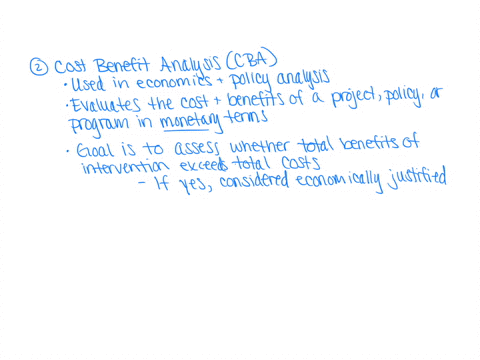 ② Cost Benefit Analysis (CBA)
• Used in economics + policy analysis
• Evaluates the cost + benefits of a project, policy, or
program in monetary terms
• Goal is to assess whether total benefits of
intervention exceeds total costs
- If yes, considered economically justified